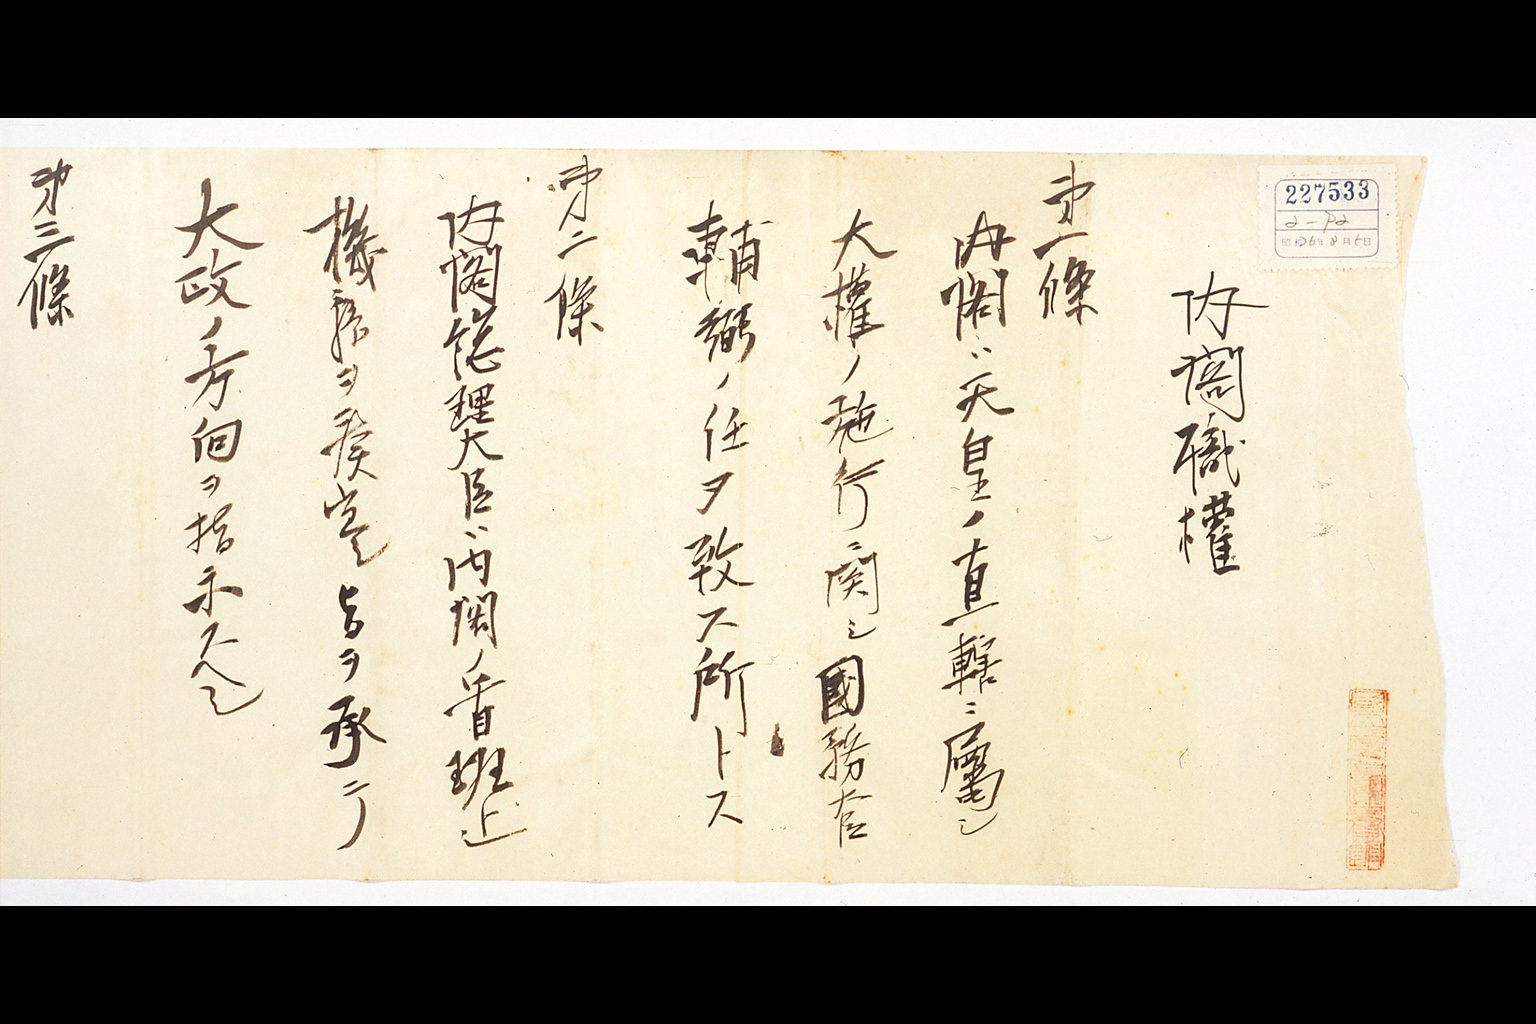 227533
2-92
昭和36年8月5日
内閣職權
第一條
内閣ハ天皇ノ直轄ニ属シ
大權ノ施行ニ関シ國務大臣
輔弼ノ任ヲ致ス所トス
第二條
内閣総理大臣ハ内閣ノ首班ニ
機務ヲ奏宣シ旨ヲ承ケテ
大政ノ方向ヲ指示スヘシ
第三條